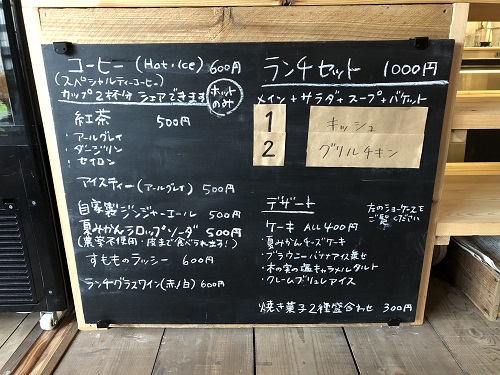 コーヒー (Hot・Ice) 600円
(スペシャルティーコーヒー)
カップ2杯分シェアできます
ホットのみ
紅茶 500円
・アールグレイ
・ダージリン
・セイロン
アイスティー(アールグレイ) 500円
自家製ジンジャーエール 500円
夏みかんシロップソーダ 500円
(農薬不使用・皮まで食べられます!)
すもものラッシー 600円
ランチグラスワイン(赤/白) 600円
ランチセット 1000円
メイン+サラダ+スープ+バケット
1 キッシュ
2 グリルチキン
デザート
左のショーケースを
ご覧ください
ケーキ ALL 400円
・夏みかんチーズケーキ
・ブラウニーバナナアイス乗せ
・木の実の塩キャラメルタルト
・クレームブリュレアイス
焼き菓子2種盛合わせ 300円